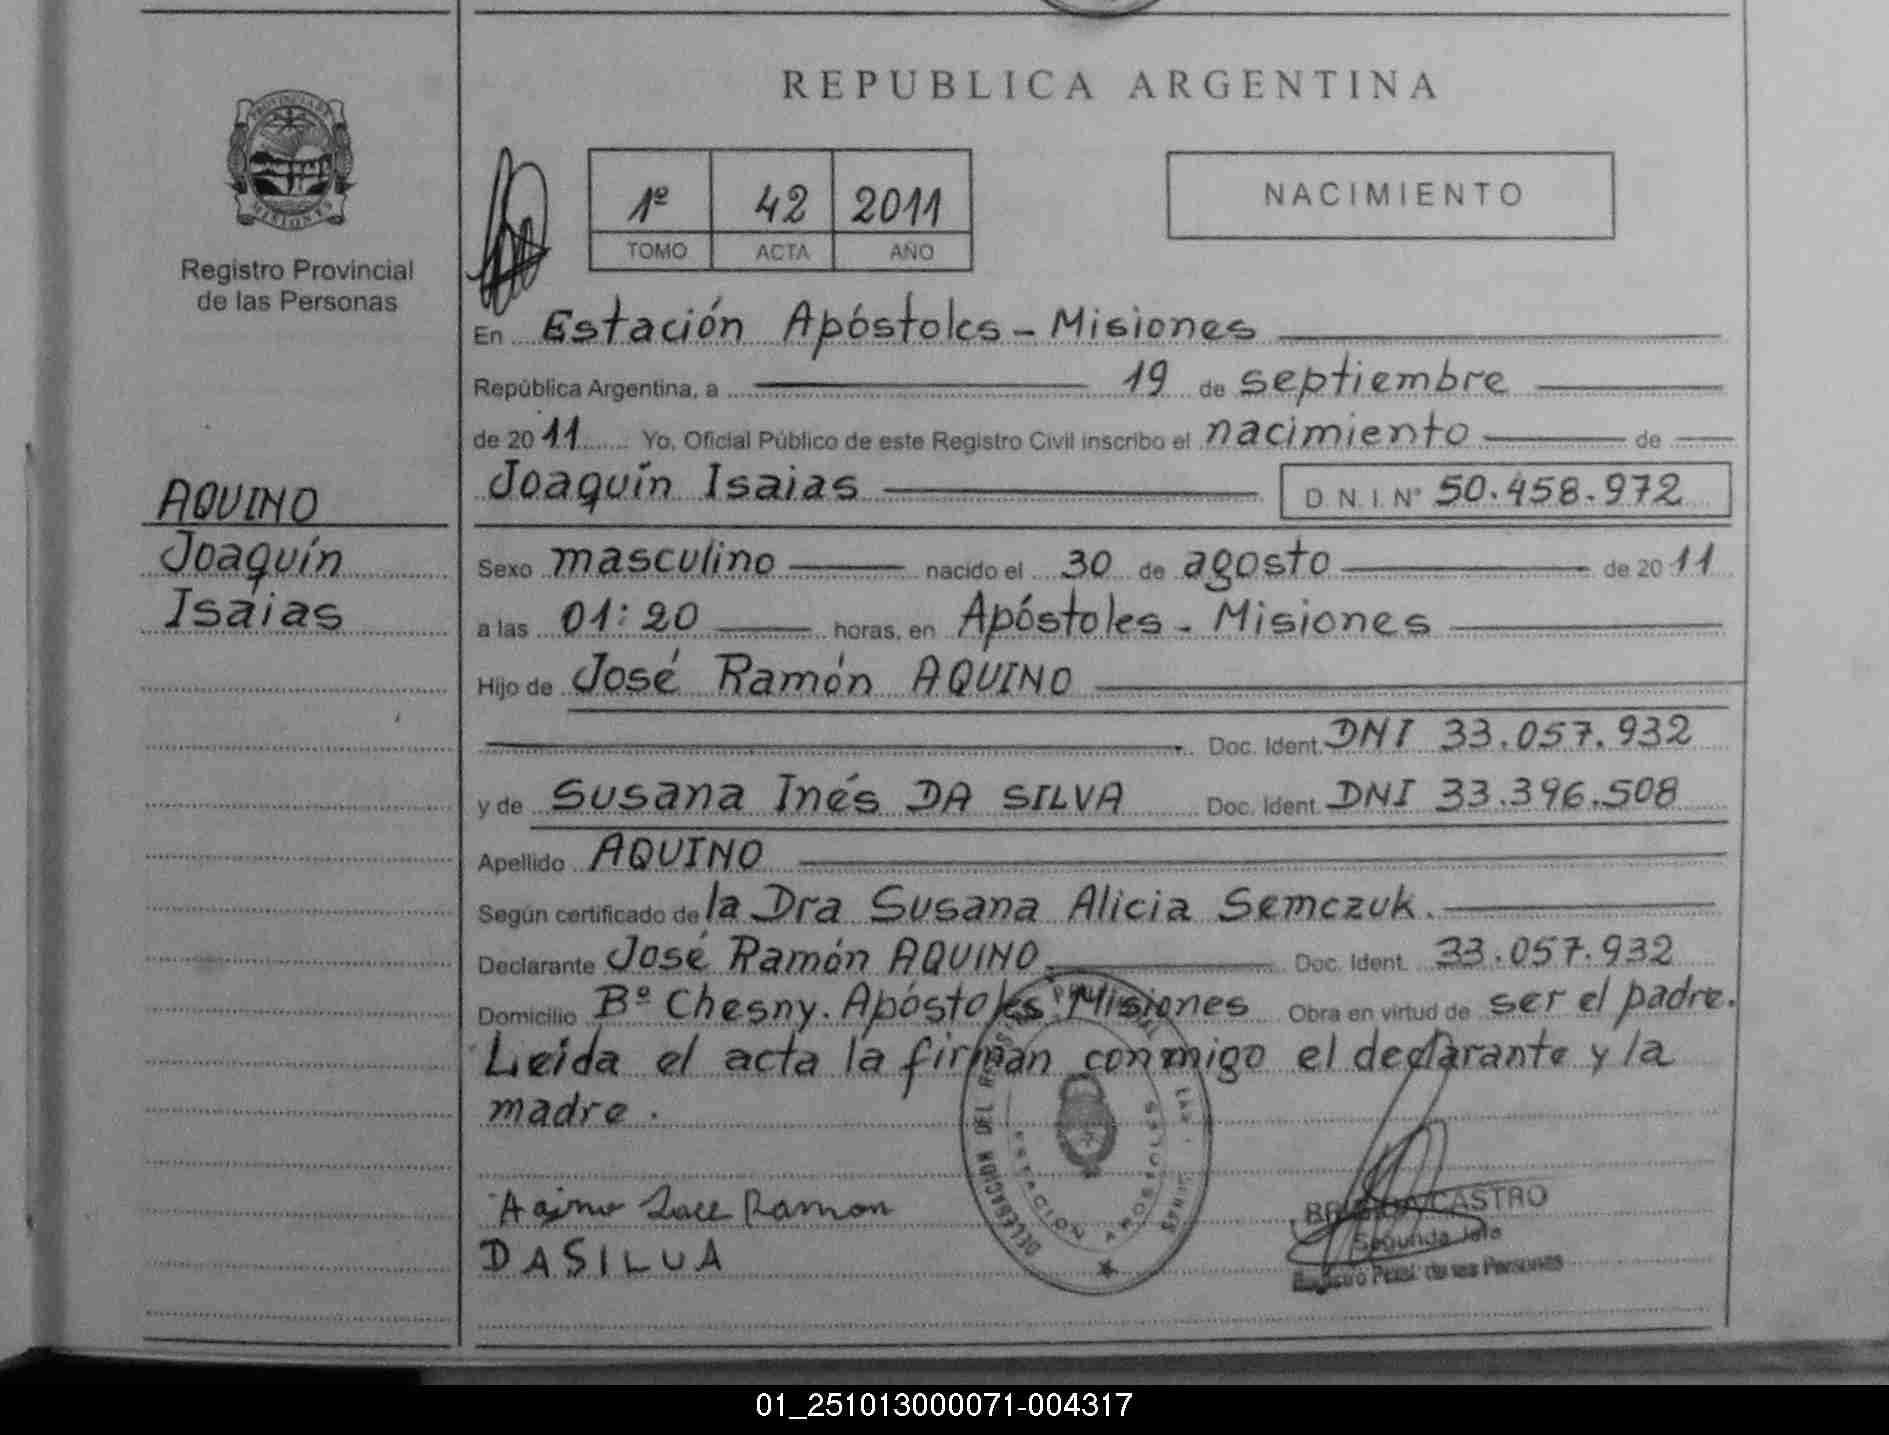 REPUBLICA ARGENTINA
PROVINCIA DE
MISIONES
Registro Provincial
de las Personas
1º 42 2011
TOMO ACTA AÑO
NACIMIENTO
En Estación Apóstoles - Misiones
República Argentina, a 19 de septiembre
de 2011 Yo, Oficial Público de este Registro Civil inscribo el nacimiento de
Joaquín Isaias D.N.I. Nº 50.458.972
AQUINO
Joaquín
Isaias
Sexo masculino nacido el 30 de agosto de 2011
a las 01:20 horas, en Apóstoles - Misiones
Hijo de José Ramón AQUINO
Doc. Ident. DNI 33.057.932
y de Susana Inés DA SILVA Doc. Ident. DNI 33.396.508
Apellido AQUINO
Según certificado de la Dra Susana Alicia Semczuk.
Declarante José Ramón AQUINO Doc. Ident. 33.057.932
Domicilio Bº Chesny. Apóstoles Misiones Obra en virtud de ser el padre.
Leída el acta la firman conmigo el declarante y la
madre.
DELEGACION DEL
ESTACION APOSTOLES
Ramon
DASILUA
CASTRO
Segunda Jefe
Registro Pcial. de las Personas
01_251013000071-004317